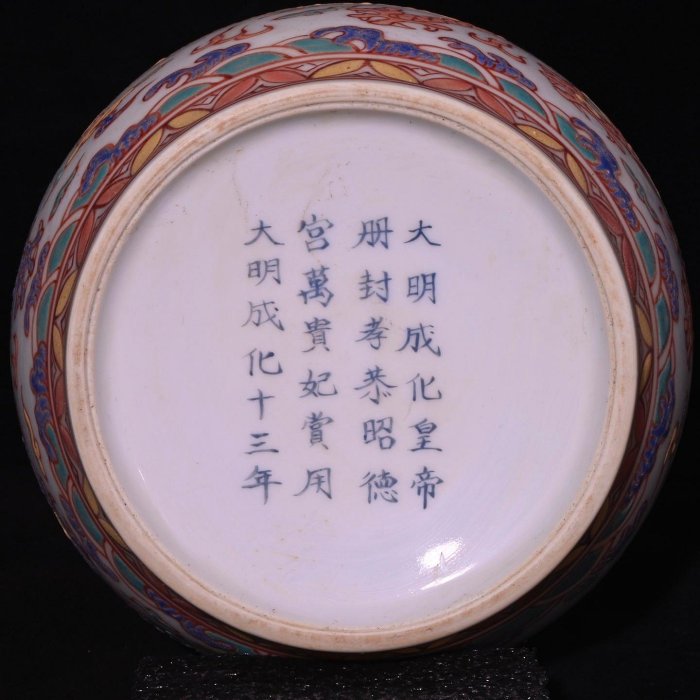 大明成化皇帝
册封孝恭昭德
宫萬貴妃賞用
大明成化十三年